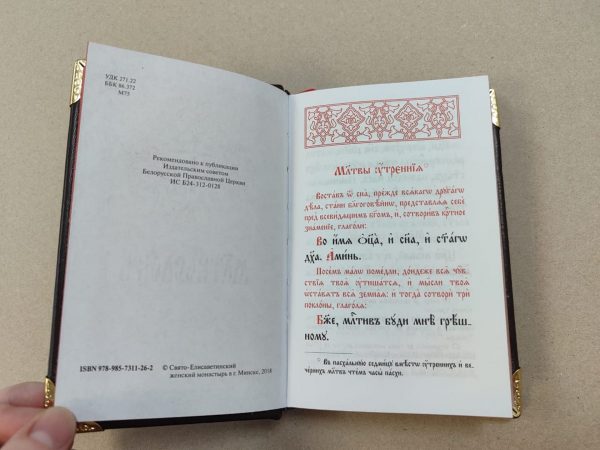 УДК 271.22
ББК 86.372
М75
Рекомендовано к публикации
Издательским советом
Белорусской Православной Церкви
ИС Б24-312-0128
ISBN 978-985-7311-26-2
© Свято-Елисаветинский
женский монастырь в г. Минске, 2018
Мл҃твы ᲂу҆́треннїѧ
Воста́въ ѿ сна̀, пре́жде всѧ́кагѡ дрꙋга́гѡ
дѣ́ла, ста́ни бл҃гоговѣ́йнѡ, представлѧ́ѧ себѐ
пред̾ всеви́дѧщимъ бг҃омъ, и҆, сотворѝвъ крⷭ҇тное
зна́менїе, глаго́ли:
Во и҆́мѧ ѻ҆ц҃а̀, и҆ сн҃а, и҆ ст҃а́гѡ
дх҃а. А҆ми́нь.
Посе́мъ ма́лѡ помедлѝ, до́ндеже всѧ̑ чꙋ̑в-
ствїѧ твоѧ̑ ᲂу҆тиша́тсѧ, и҆ мы̑сли твоѧ̑
ѡ҆ста́вѧтъ всѧ̑ земна̑ѧ: и҆ тогда̀ сотворѝ трѝ
покло́ны, глаго́лѧ:
Бж҃е, млⷭ҇тивъ бꙋ́ди мнѣ̀ грѣ́ш-
номꙋ.
Въ пасха́льнꙋю седми́цꙋ вмѣ́стѡ ᲂу҆́треннихъ и҆ ве-
че́рнихъ мл҃твъ чте́мъ часы̀ па́схи.